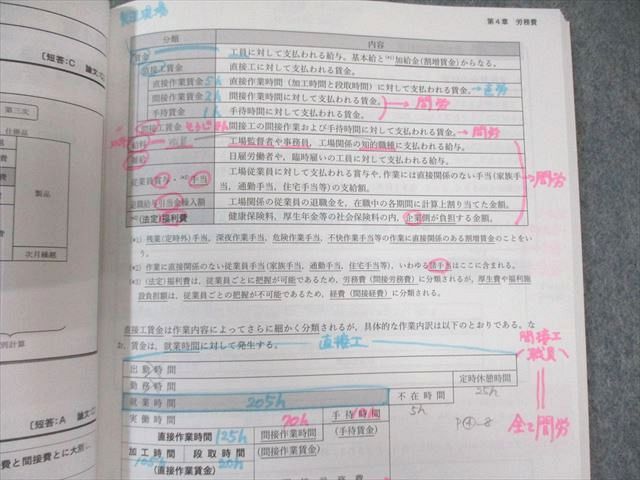 第4章 労務費
製造現場
分類 内容
賃金 工員に対して支払われる給与。基本給と(*1)加給金(割増賃金)からなる。
直接工賃金 直接工に対して支払われる賃金。
直接作業賃金 5h 直接作業時間(加工時間と段取時間)に対して支払われる賃金。→直労
間接作業賃金 2h 間接作業時間に対して支払われる賃金。
手待賃金 1h 手待時間に対して支払われる賃金。
→間労
間接工賃金 間接工の間接作業および手待時間に対して支払われる賃金。→間労
給料 工場監督者や事務員、工場関係の知的職種に支払われる給与。
雑給 日雇労働者や、臨時雇いの工員に対して支払われる給与。
従業員賞与・(*2)手当 工場従業員に対して支払われる賞与や、作業には直接関係のない手当(家族手
当、通勤手当、住宅手当等)の支給額。
→間労
退職給付引当金繰入額 工場関係の従業員の退職金を、在職中の各期間に計上割り当てた金額。
(*3)(法定)福利費 健康保険料、厚生年金等の社会保険料の内、企業側が負担する金額。
(*1) 残業(定時外)手当、深夜作業手当、危険作業手当、不快作業手当等の作業に直接関係のある割増賃金のことをい
う。
(*2) 作業に直接関係のない従業員手当(家族手当、通勤手当、住宅手当等)、いわゆる諸手当はここに含まれる。
(*3) (法定)福利費は、従業員ごとに把握が可能であるため、労務費(間接労務費)に分類されるが、厚生費や福利施
設負担額は、従業員ごとの把握が不可能であるため、経費(間接経費)に分類される。
直接工賃金は作業内容によってさらに細かく分類されるが、具体的な作業内訳は以下のとおりである。な
お、賃金は、就業時間に対して発生する。
直接工
間接工
職員
全て間労
出勤時間
勤務時間 定時休憩時間
25h
就業時間 205h 不在時間
5h
P④-8
実働時間 70h 手待時間
直接作業時間 125h 間接作業時間 (手待賃金)
加工時間 段取時間 (間接作業賃金)
105h 20h
(直接作業賃金)
[短答:C 論文:
第三次
仕掛品
製品
次月繰越
別計算
[短答:A 論文:
費と間接費とに大別